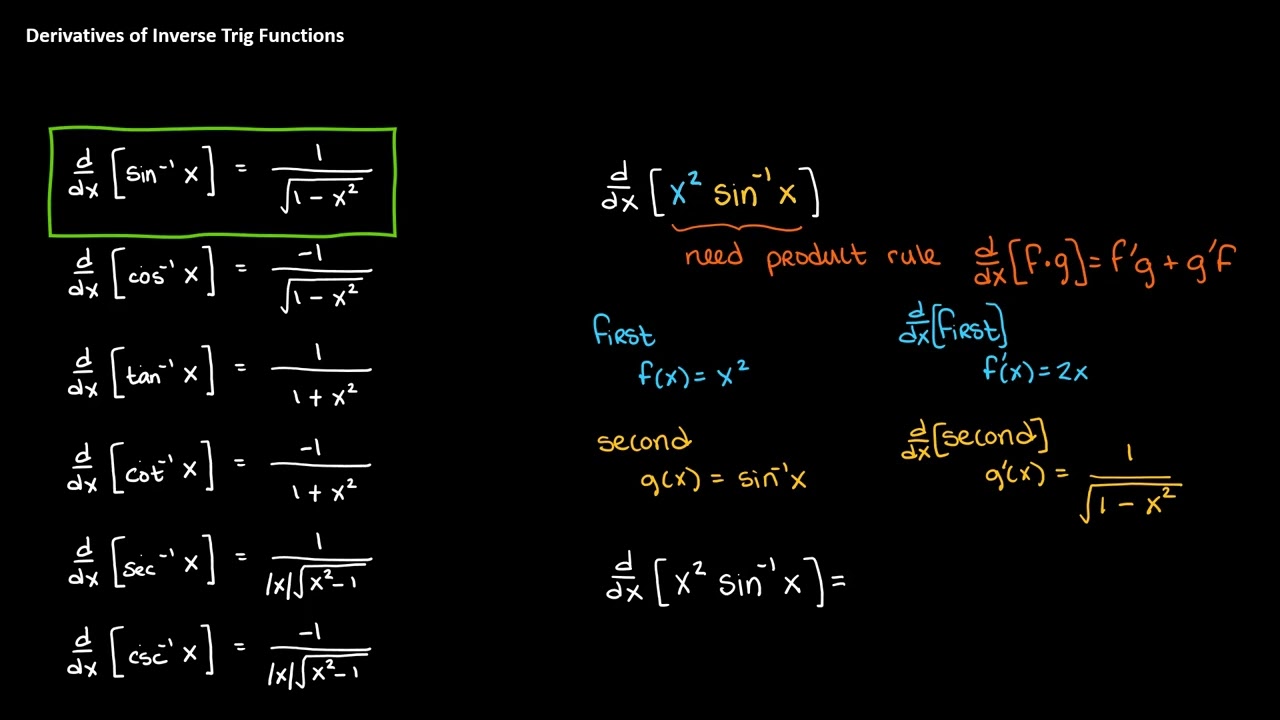 Derivatives of Inverse Trig Functions
d/dx [sin⁻¹ x] = 1/√(1 − x²)
d/dx [cos⁻¹ x] = −1/√(1 − x²)
d/dx [tan⁻¹ x] = 1/(1 + x²)
d/dx [cot⁻¹ x] = −1/(1 + x²)
d/dx [sec⁻¹ x] = 1/(|x|√(x² − 1))
d/dx [csc⁻¹ x] = −1/(|x|√(x² − 1))
d/dx [x² sin⁻¹ x]
need product rule d/dx [f·g] = f′g + g′f
first d/dx [first]
f(x) = x² f′(x) = 2x
second d/dx [second]
g(x) = sin⁻¹x g′(x) = 1/√(1 − x²)
d/dx [x² sin⁻¹ x] =